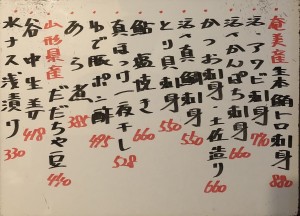 奄美産生本鮪トロ刺身 880
活〆アワビ刺身 770
活〆かんぱち刺身 660
かつお刺身・土佐造り 660
活〆真鯛刺身 550
とり貝刺身 550
鮎塩焼き 660
真ほっけ一夜干し 528
ゆで豚ポン酢 495
あら煮 385
山形県産だだちゃ豆 440
谷中生姜 418
水ナス浅漬り 330